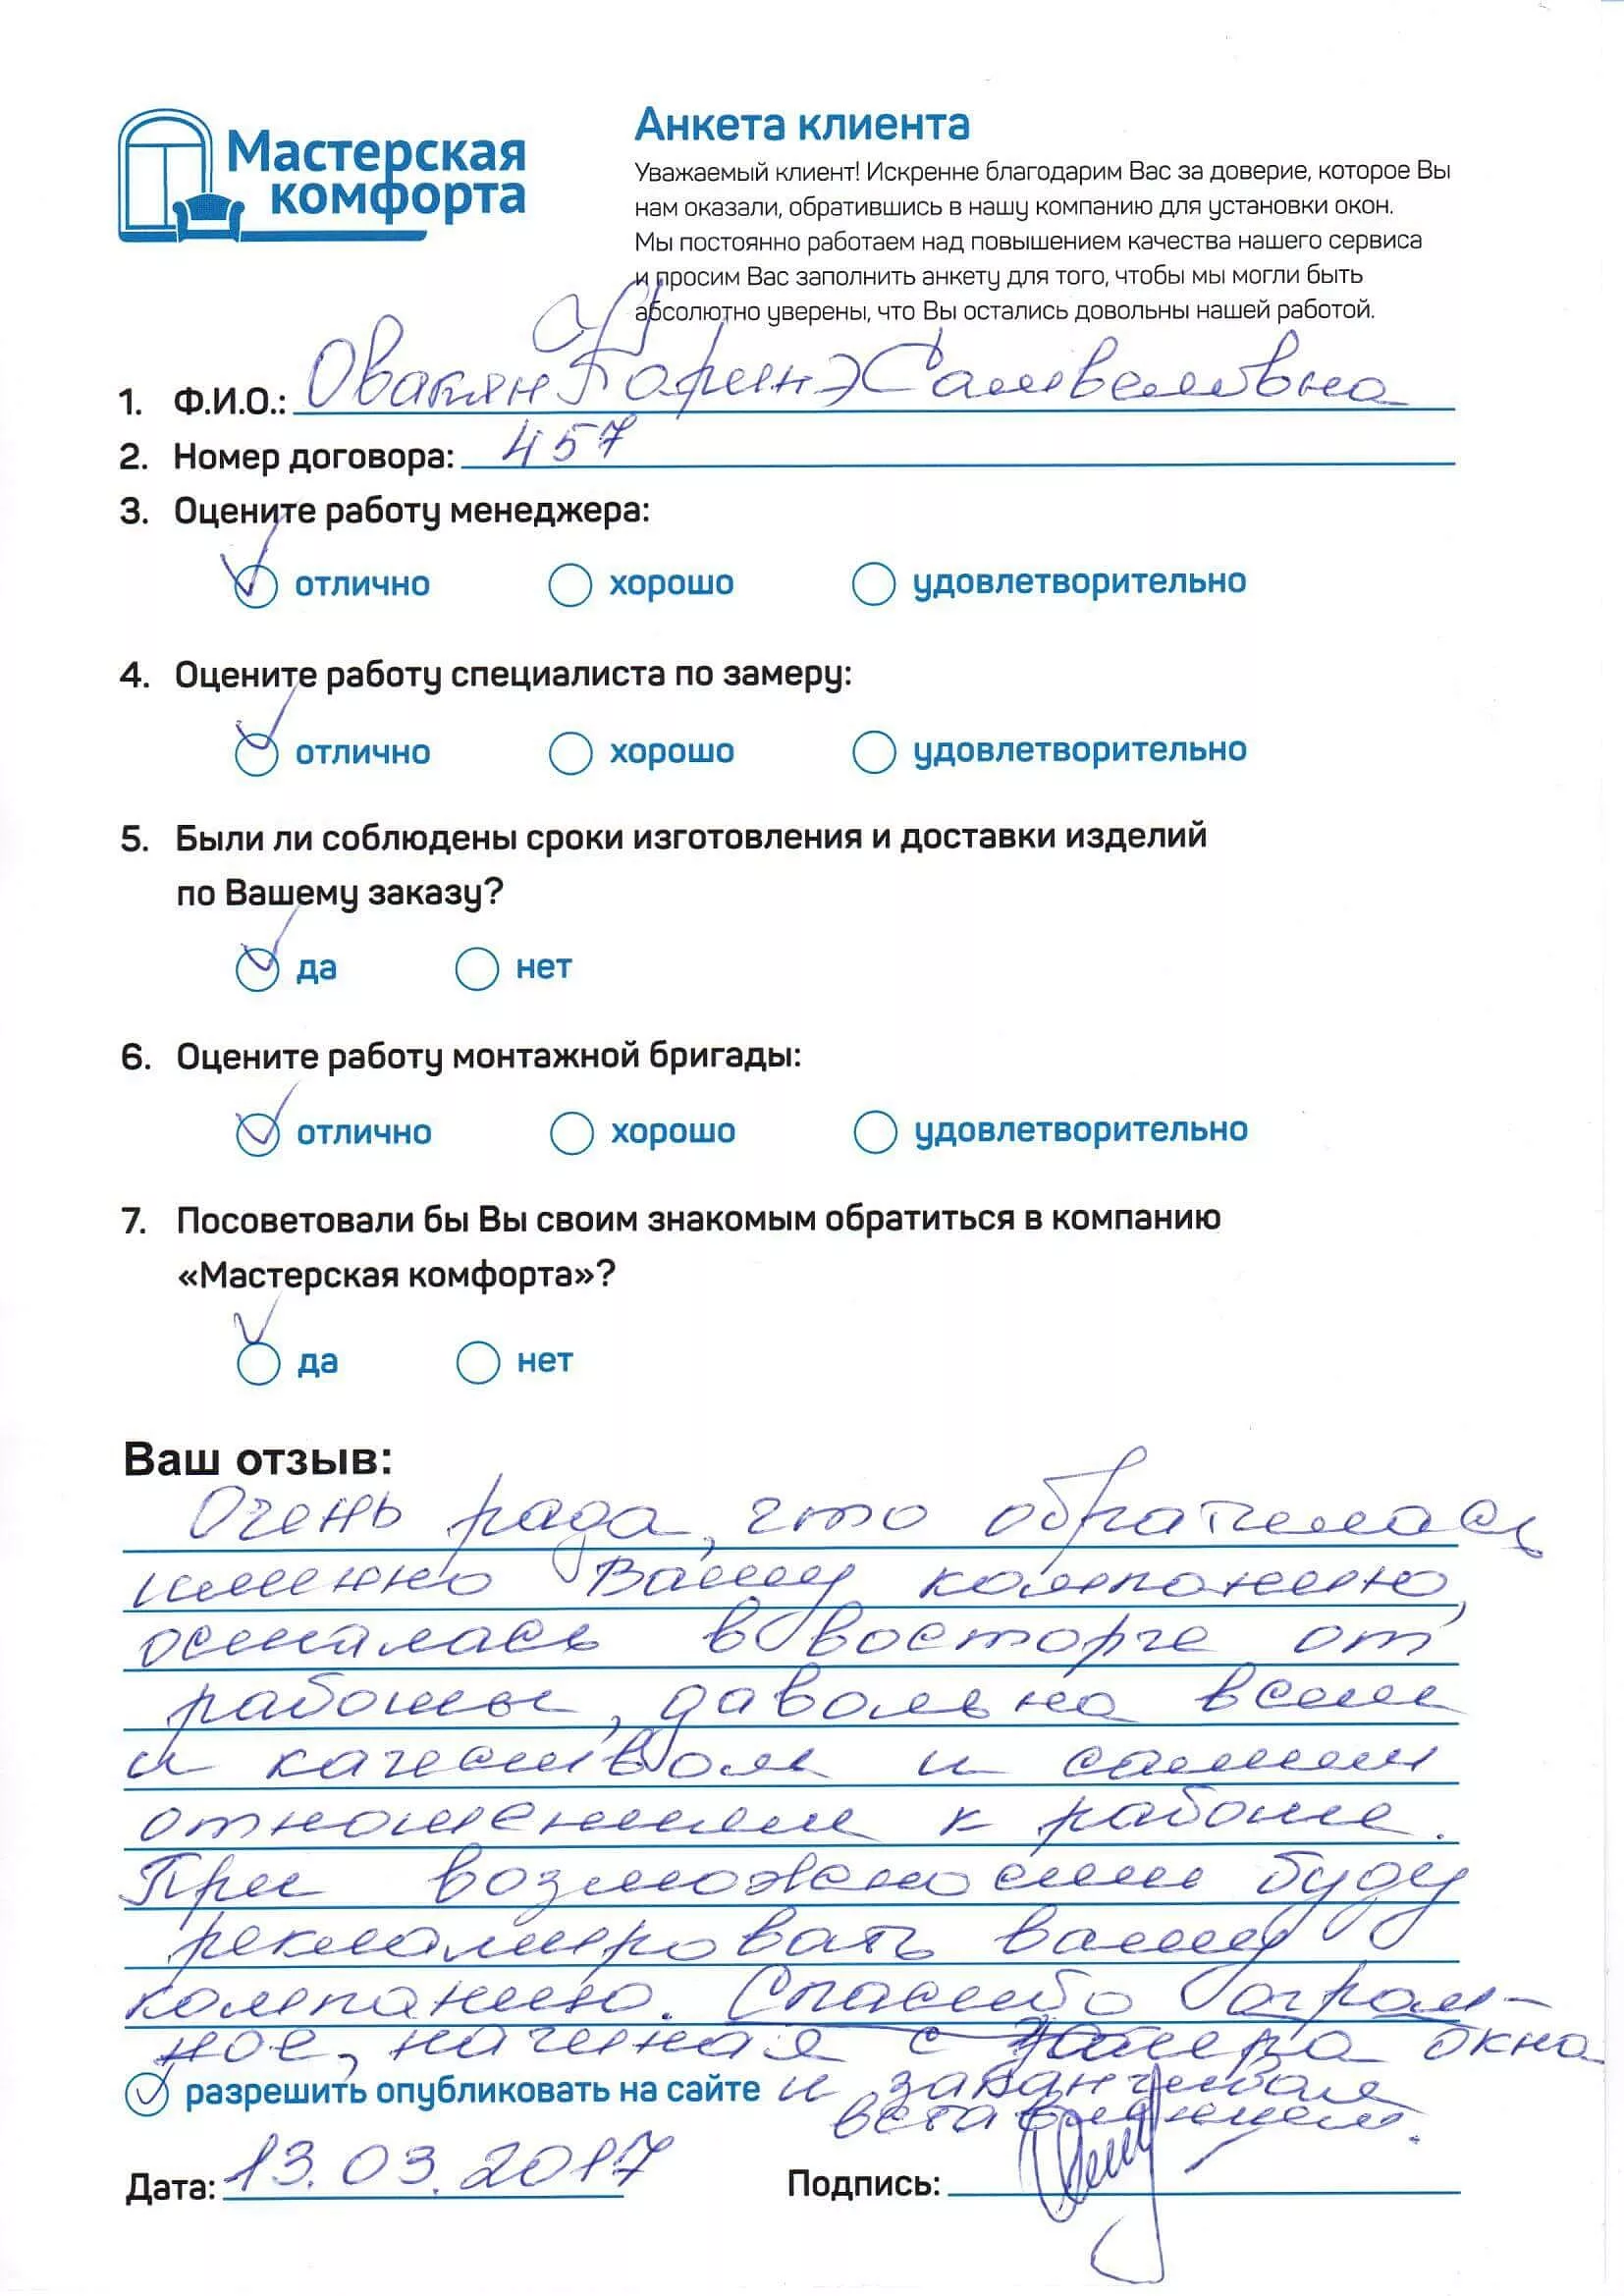 Мастерская
комфорта
Анкета клиента
Уважаемый клиент! Искренне благодарим Вас за доверие, которое Вы
нам оказали, обратившись в нашу компанию для установки окон.
Мы постоянно работаем над повышением качества нашего сервиса
и просим Вас заполнить анкету для того, чтобы мы могли быть
абсолютно уверены, что Вы остались довольны нашей работой.
1. Ф.И.О.: Овакян Каринэ Самвеловна
2. Номер договора: 457
3. Оцените работу менеджера:
отлично хорошо удовлетворительно
4. Оцените работу специалиста по замеру:
отлично хорошо удовлетворительно
5. Были ли соблюдены сроки изготовления и доставки изделий
по Вашему заказу?
да нет
6. Оцените работу монтажной бригады:
отлично хорошо удовлетворительно
7. Посоветовали бы Вы своим знакомым обратиться в компанию
«Мастерская комфорта»?
да нет
Ваш отзыв:
Очень рада, что обратилась
именно Вашу компанию,
осталась в восторге от
работы, давольна всем
и качеством и самим
отношением к работе.
При возможности буду
рекламировать вашу
компанию. Спасибо агром-
ное, начиная с замера окна
разрешить опубликовать на сайте и заканчивая
вставлением.
Дата: 13.03.2017 Подпись: